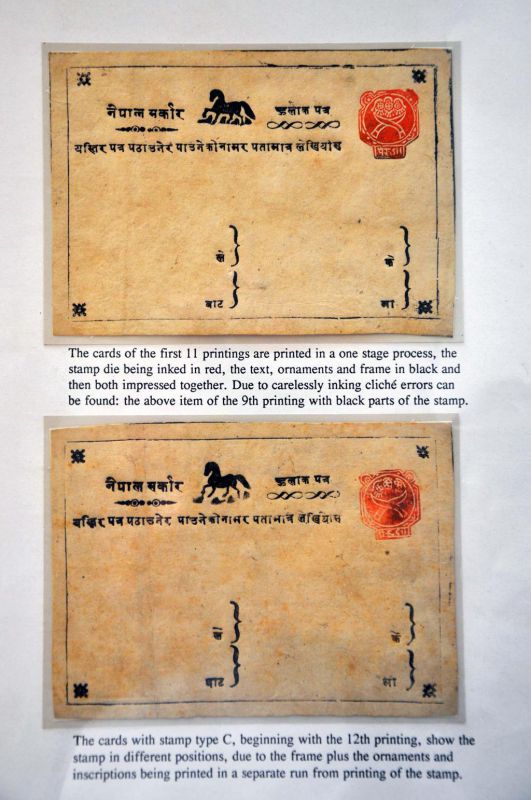 नेपाल सर्कार
खुलोक पत्र
यस्भित्र पत्र पठाउनेर पाउनेकोनामर पतामात्र लेखियोस
ले
के
बाट
मा
The cards of the first 11 printings are printed in a one stage process, the
stamp die being inked in red, the text, ornaments and frame in black and
then both impressed together. Due to carelessly inking cliché errors can
be found: the above item of the 9th printing with black parts of the stamp.
नेपाल सर्कार
पत्र
पत्र पठाउनेर पाउनेकोनामर पतामात्र
बाट
मा
The cards with stamp type C, beginning with the 12th printing, show the
stamp in different positions, due to the frame plus the ornaments and
inscriptions being printed in a separate run from printing of the stamp.